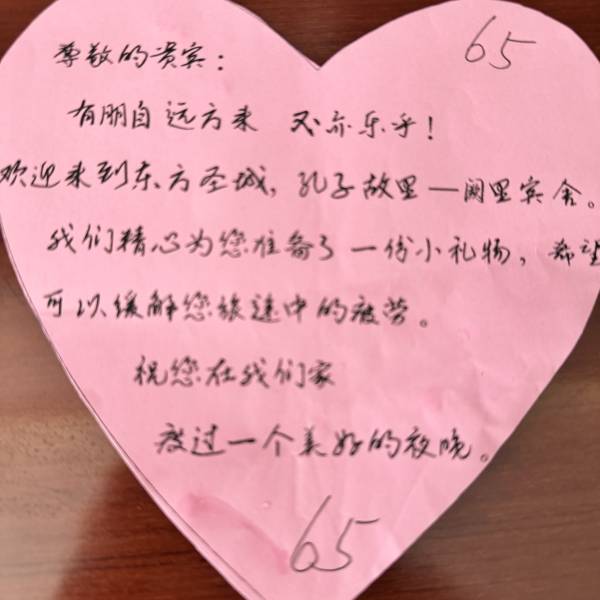 65
尊敬的贵宾：
有朋自远方来 不亦乐乎！
欢迎来到东方圣城，孔子故里—阙里宾舍。
我们精心为您准备了一份小礼物，希望
可以缓解您旅途中的疲劳。
祝您在我们家
度过一个美好的夜晚。
65